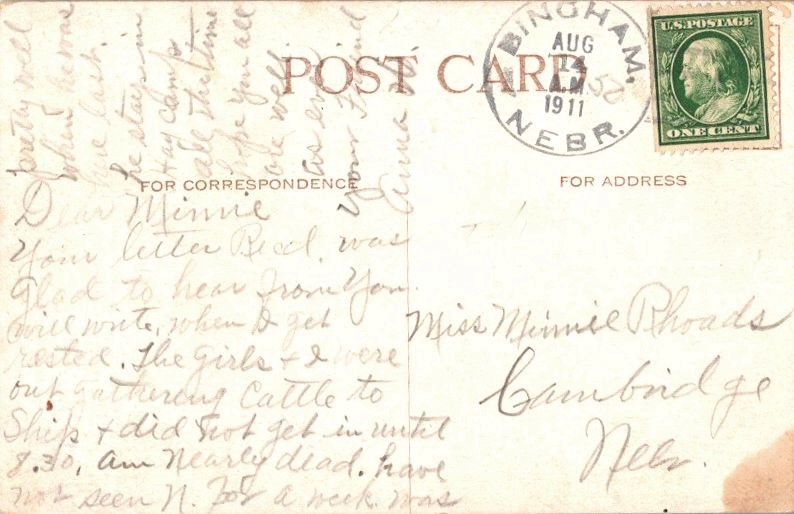 POST CARD
BINGHAM,
AUG
14
A.M
1911
NEBR.
U.S. POSTAGE
ONE CENT
FOR CORRESPONDENCE
FOR ADDRESS
Dear Minnie
Your letter Recd. was
glad to hear from You.
will write, when I get
rested. The girls + I were
out gathering Cattle to
Ship + did not get in until
8.30, am Nearly dead. have
not seen N. for a week. was
pretty well
when he was
here last.
he stays in
Hay camp
all the time
hope you all
are well
as ever
your Friend
Anna
Miss Minnie Rhoads
Cambridge
Nebr.